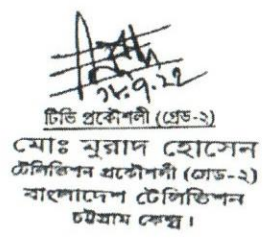 ২৮.৭.২২
টিভি প্রকৌশলী (গ্রেড-২)
মোঃ মুরাদ হোসেন
টেলিভিশন প্রকৌশলী (গ্রেড-২)
বাংলাদেশ টেলিভিশন
চট্টগ্রাম কেন্দ্র।